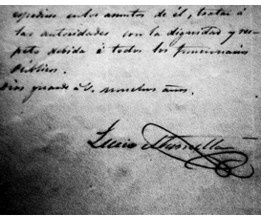 espedirse en los asuntos de él, tratar á
las autoridades con la dignidad y res-
peto debido á todos los funcionarios
Públicos.
Dios guarde á V. muchos años.
Lucio